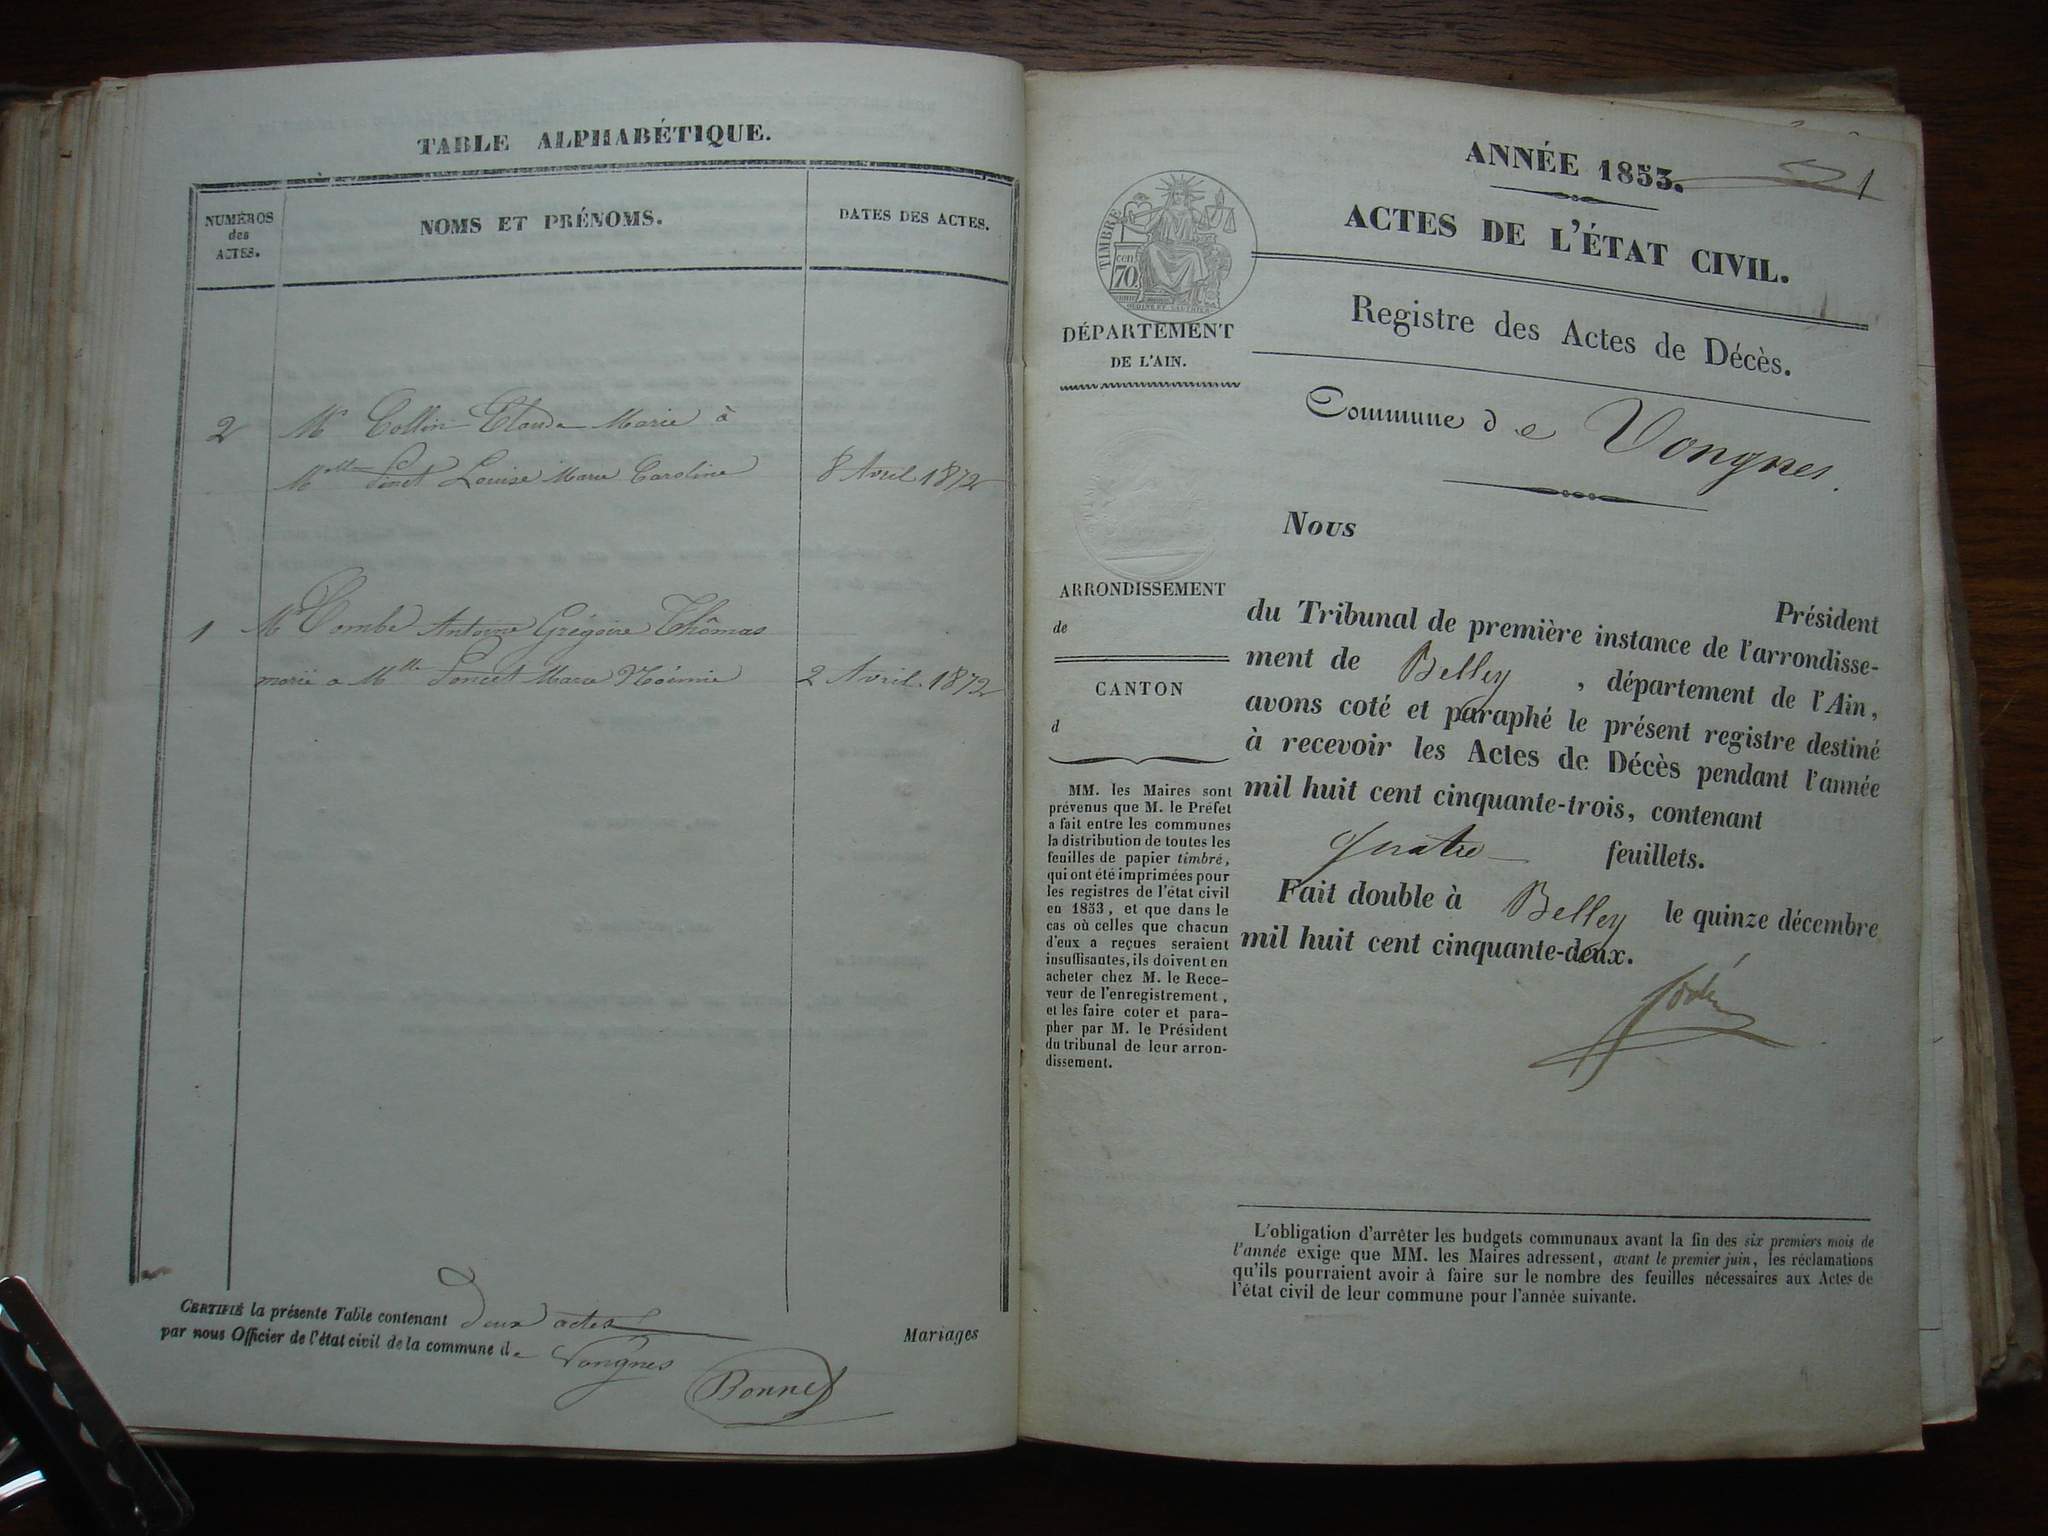 TABLE ALPHABÉTIQUE.
NUMÉROS
des
ACTES.
NOMS ET PRÉNOMS.
DATES DES ACTES.
2 Mr Collin Claude Marie à
Melle Louise Marie Caroline 8 Avril 1872
1 Mr Antoine Grégoire Thômas
marié a Melle Poncet Marie Noémie 2 Avril 1872
CERTIFIÉ la présente Table contenant deux actes
Mariages
par nous Officier de l'état civil de la commune de Vongnes
Bonnet
ANNÉE 1853.
1
ACTES DE L'ÉTAT CIVIL.
TIMBRE
cent
70.
Registre des Actes de Décès.
DÉPARTEMENT
DE L'AIN.
Commune de Vongnes.
Nous
ARRONDISSEMENT
de
CANTON
d
MM. les Maires sont
prévenus que M. le Préfet
a fait entre les communes
la distribution de toutes les
feuilles de papier timbré,
qui ont été imprimées pour
les registres de l'état civil
en 1853, et que dans le
cas où celles que chacun
d'eux a reçues seraient
insuffisantes, ils doivent en
acheter chez M. le Rece-
veur de l'enregistrement,
et les faire coter et para-
pher par M. le Président
du tribunal de leur arron-
dissement.
Président
du Tribunal de première instance de l'arrondisse-
ment de Belley , département de l'Ain,
avons coté et paraphé le présent registre destiné
à recevoir les Actes de Décès pendant l'année
mil huit cent cinquante-trois, contenant
quatre feuillets.
Fait double à Belley le quinze décembre
mil huit cent cinquante-deux.
L'obligation d'arrêter les budgets communaux avant la fin des six premiers mois de
l'année exige que MM. les Maires adressent, avant le premier juin, les réclamations
qu'ils pourraient avoir à faire sur le nombre des feuilles nécessaires aux Actes de
l'état civil de leur commune pour l'année suivante.